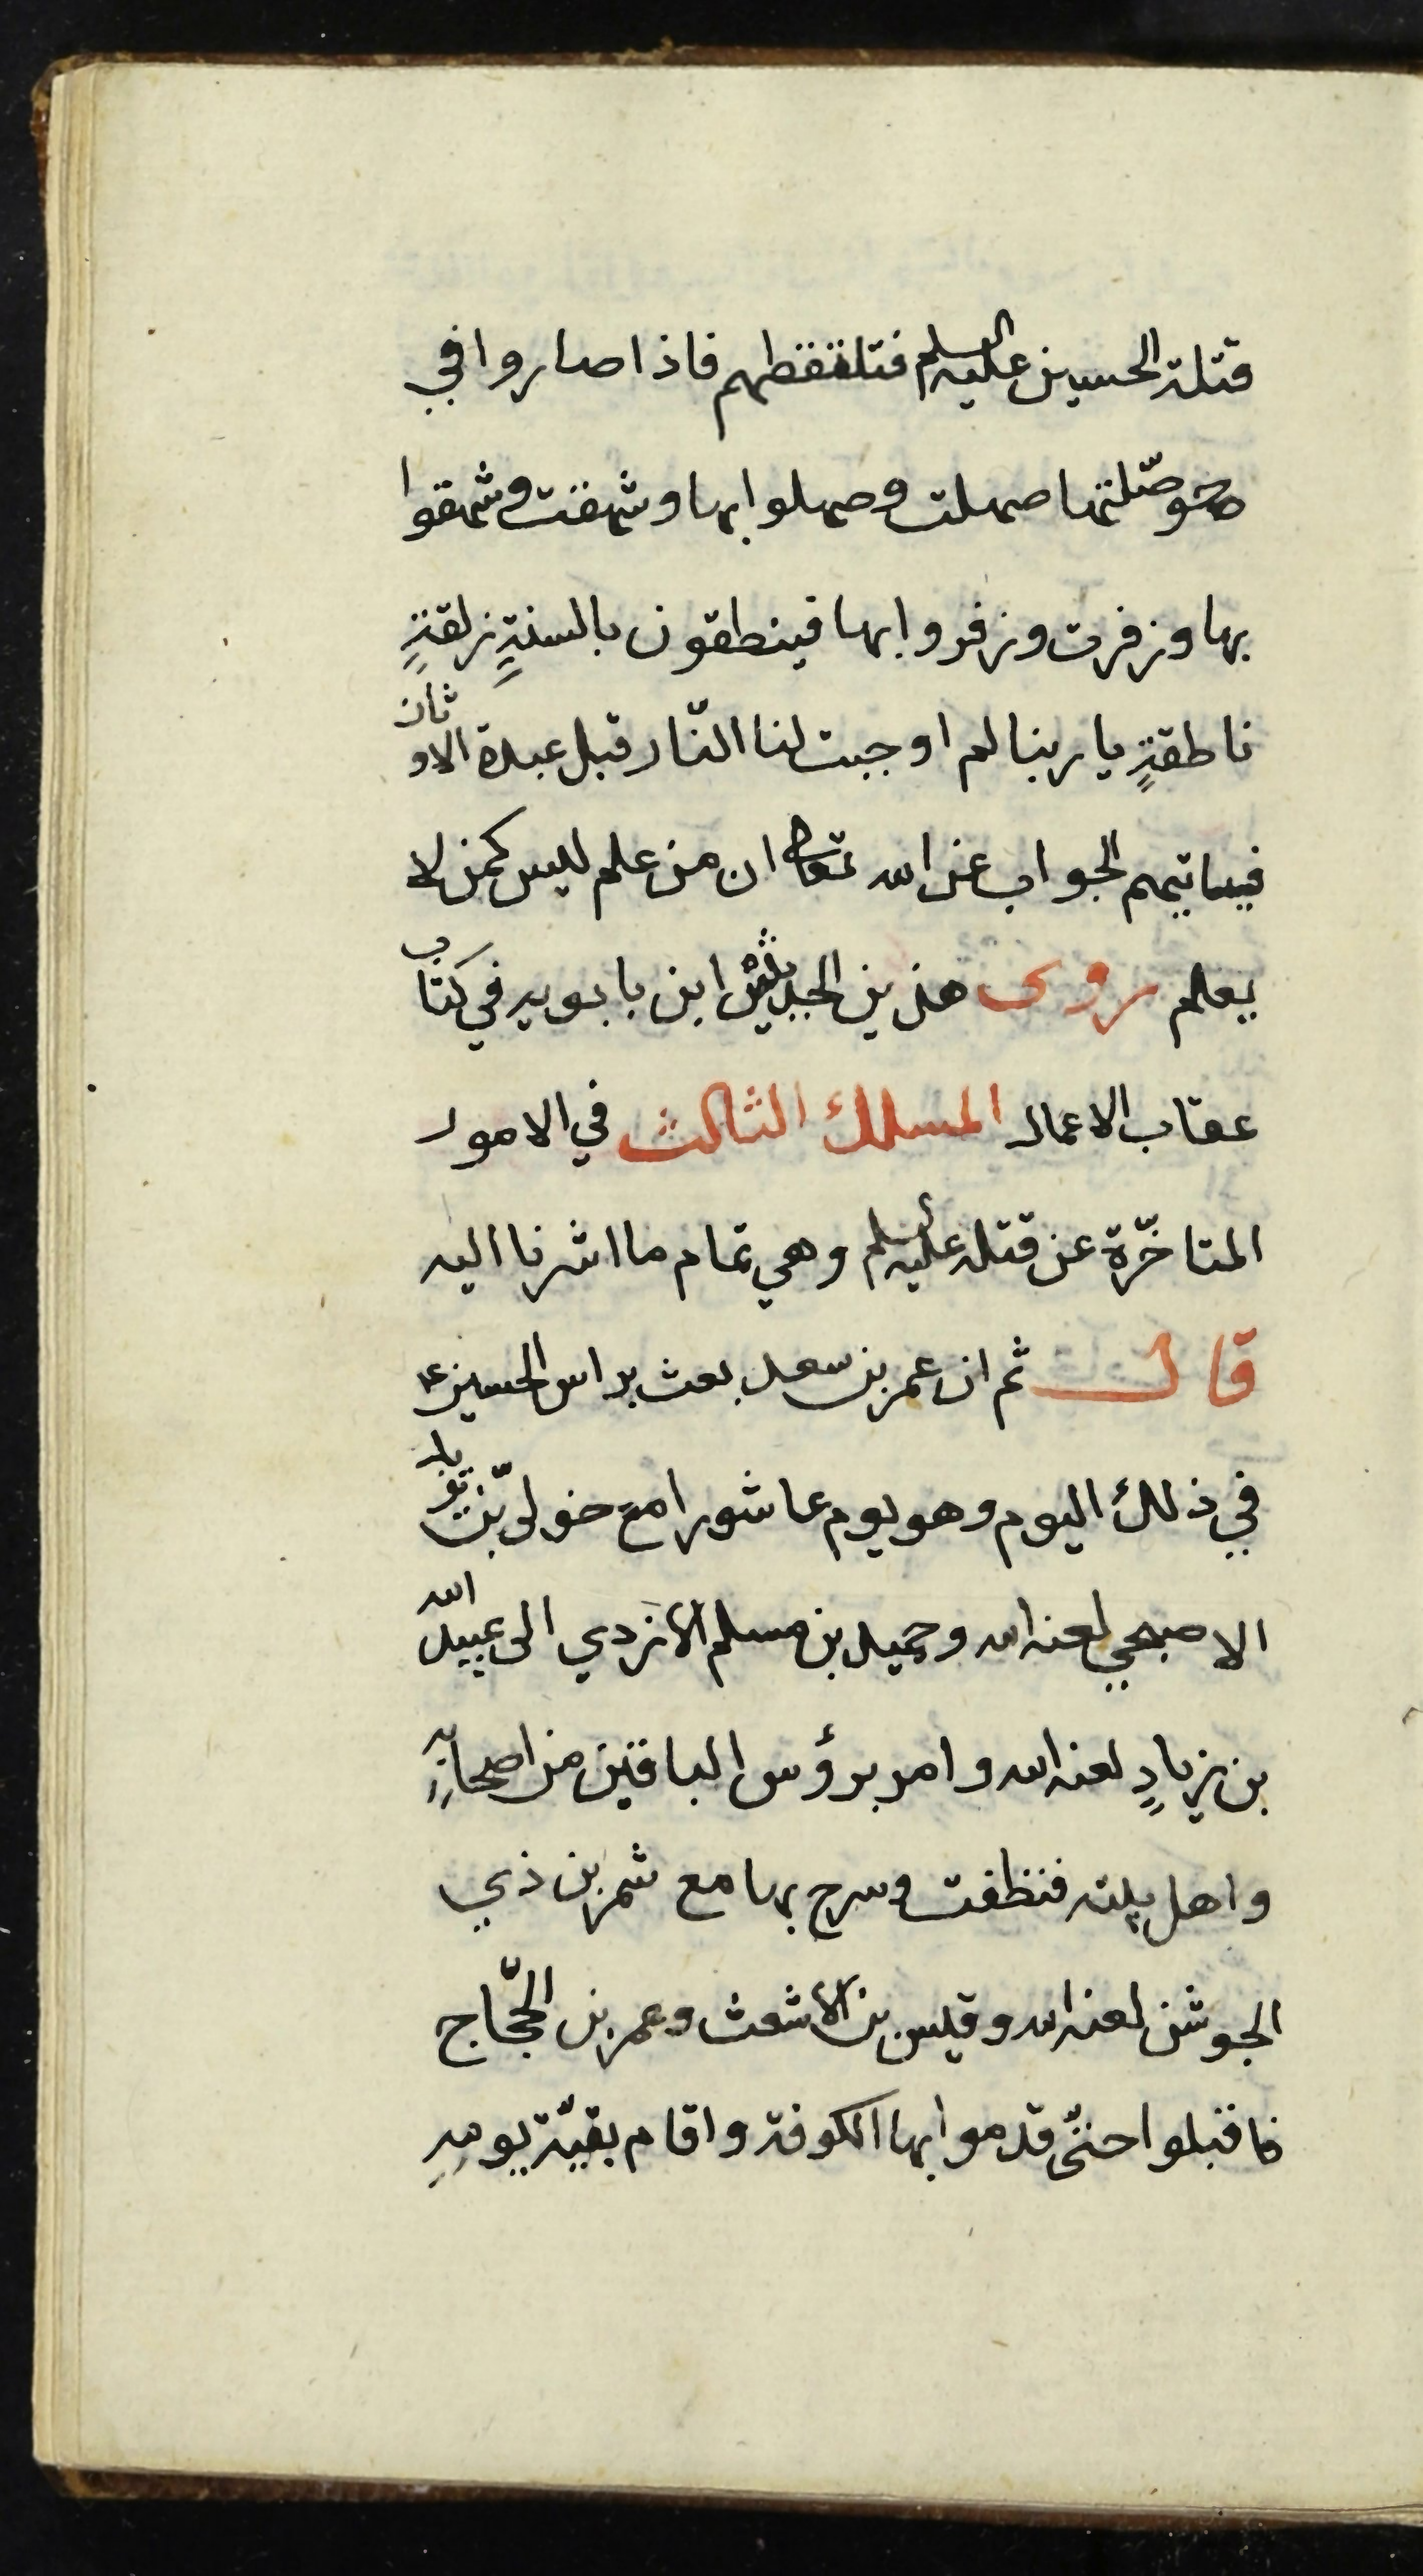 قتلة الحسين عليه السلم فتلتقطهم فاذا صاروا في
حوصلتها صهلت وصهلوا بها وشهقت وشهقوا
بها وزفرت وزفروا بها فينطقون بالسنةٍ زلقةٍ
ناطقةٍ يا ربنا لم اوجبت لنا النّار قبل عبدة الاوثان
فياتيهم الجواب عن الله تعالى ان من علم ليس كمن لا
يعلم روى هذين الحديثين ابن بابويه في كتاب
عقاب الاعمال المسلك الثالث في الامور
المتاخّرة عن قتله عليه السلم وهي تمام ما اشرنا اليه
قال ثم ان عمر بن سعد بعث براس الحسين ع
في ذلك اليوم وهو يوم عاشورا مع خولىّ بن يزيد
الاصبحي لعنه الله وحميد بن مسلم الازدي الى عبيد الله
بن زيادٍ لعنه الله وامر برؤس الباقين من اصحابهِ
واهل بيته فنظفت وسرح بها مع شمر بن ذي
الجوشن لعنه الله وقيس بن الاشعث وعمر بن الحجّاج
فاقبلوا حتّى قدموا بها الكوفة واقام بقيّة يومهِ